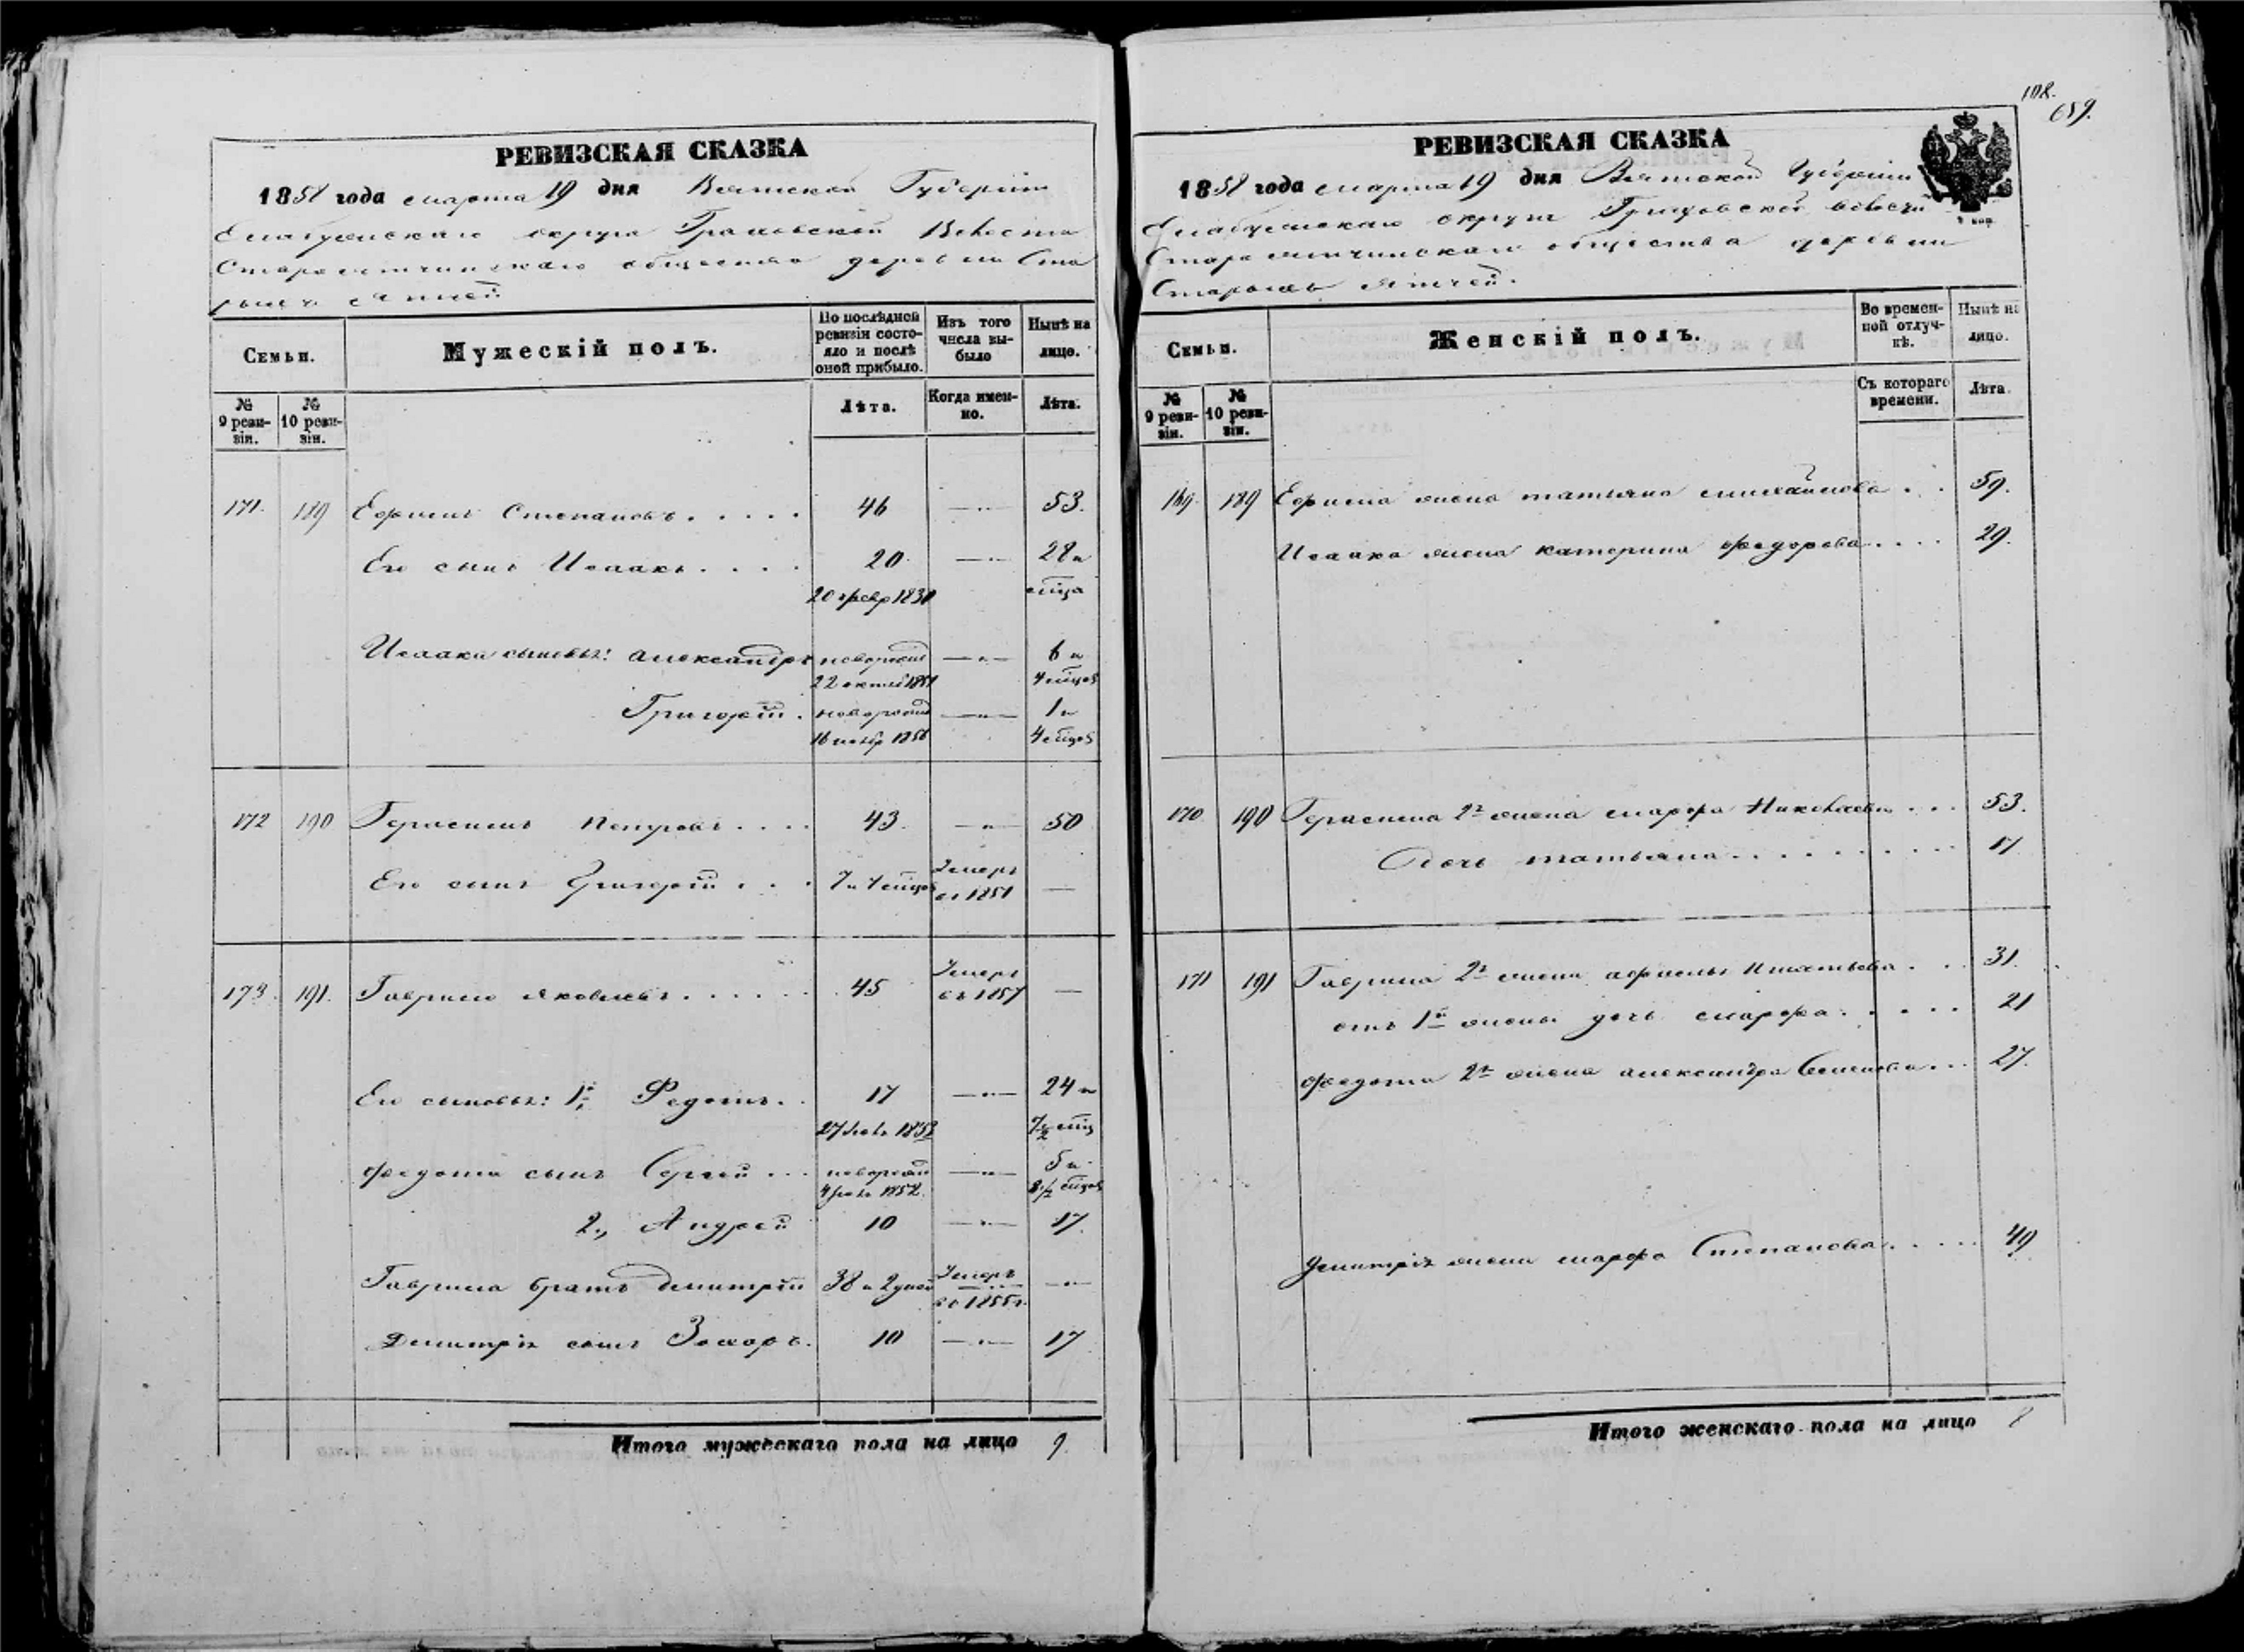 РЕВИЗСКАЯ СКАЗКА
1858 года марта 19 дня Вятской Губерніи
Елабужскаго округа Граховской Волости
Староятчинскаго общества деревни Ста
рыхъ Ятчей
Семьи.
Мужескій полъ.
По послѣдней ревизіи состояло и послѣ оной прибыло.
Изъ того числа выбыло
Нынѣ на лицо.
№ 9 ревизіи.
№ 10 ревизіи.
Лѣта.
Когда именно.
Лѣта.
171. 189 Ефимъ Степановъ 46 53.
Его сынъ Исаакъ 20 28 и
20 февр 1830 мца
Исаака сыновья: Александръ новорожд 6 и
22 октяб 1851 4 мцов
Григорій новорожд 1 и
16 ноябр 1856 4 мцов
172 190 Герасимъ Петровъ 43. 50
Его сынъ Григорій 7 и 1 мцов Умеръ въ 1851
173. 191. Гаврило Яковлевъ 45 Умеръ въ 1857
Его сыновья: 1й, Федотъ 17 24 и
27 1833 7½ мцъ
Федота сынъ Сергей новорожд 5 и
1852. 8½ мцов
2., Андрей 10 17.
Гаврила братъ Дмитрій 38 и 2 дней Умеръ въ 1855 г.
Дмитрія сынъ Захаръ 10 17
Итого мужескаго пола на лицо 9.
108.
659.
РЕВИЗСКАЯ СКАЗКА
1858 года марта 19 дня Вятской Губерніи
Елабужскаго округа Граховской волости
Староятчинскаго общества деревни
Старыхъ Ятчей.
Семьи.
Женскій полъ.
Во временной отлучкѣ.
Нынѣ на лицо.
№ 9 ревизіи.
№ 10 ревизіи.
Съ котораго времени.
Лѣта.
169. 189 Ефима жена Татьяна Михайлова 59.
Исаака жена Катерина Федорова 29.
170. 190 Герасима 2я жена Марфа Николаева 53.
Дочь Татьяна 17
171 191 Гаврила 2я жена Афимья Игнатьева 31.
отъ 1й жены дочь Марфа 21
Федота 2я жена Александра Семенова 27.
Дмитрія жена Марфа Степанова 49
Итого женскаго пола на лицо 8